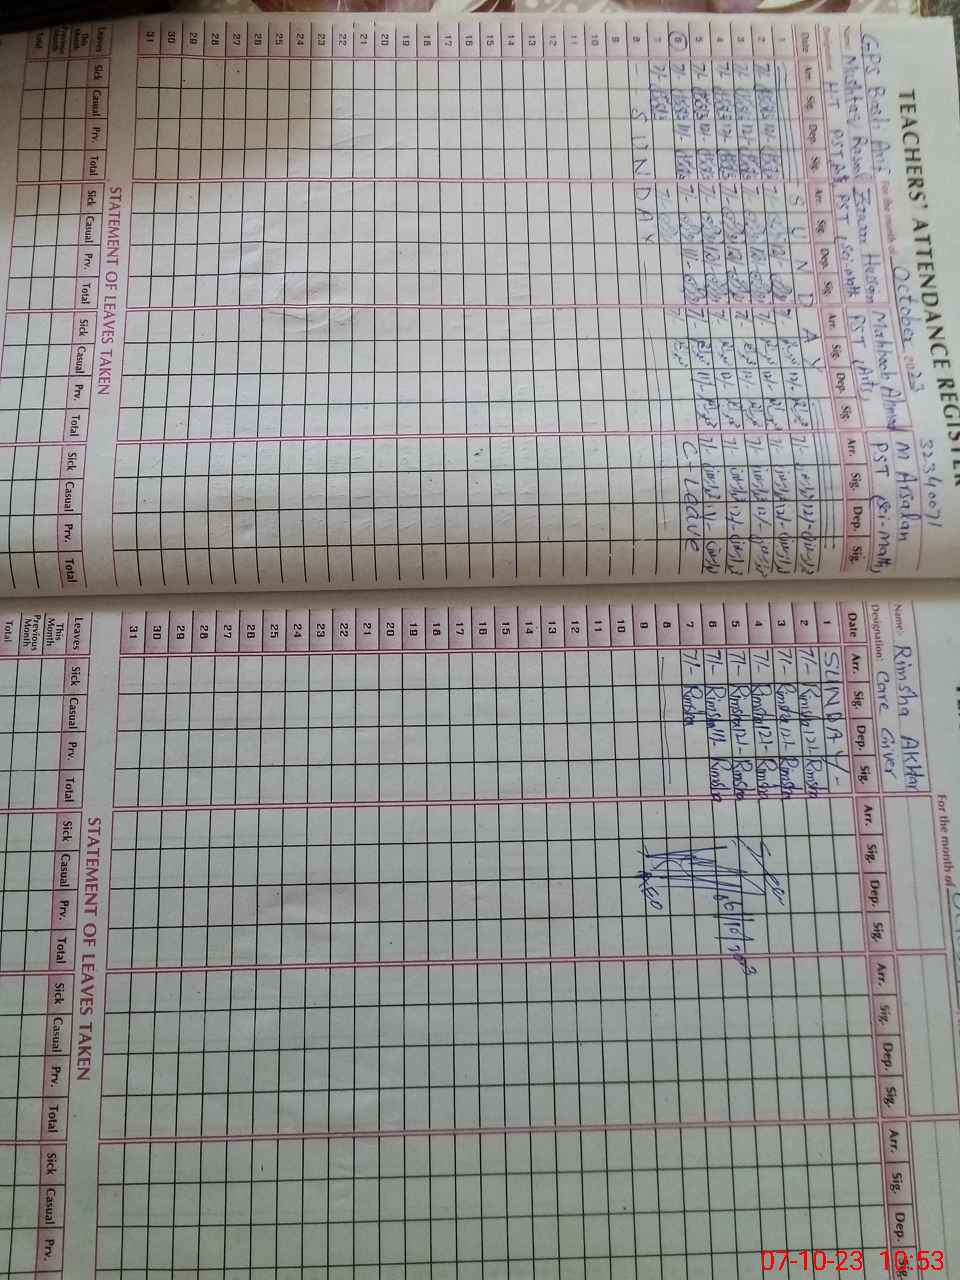 TEACHERS' ATTENDANCE REGISTER
32340071
GPS Basti Arif For the month of October 2023
Name Mushtaq Rasool Zawar Hussain Mahboob Ahmad M Arsalan
Designation HT PST PST (Sci-math PST (Arts) PST (Sci-math)
Date Arr. Sig. Dep. Sig. Arr. Sig. Dep. Sig. Arr. Sig. Dep. Sig. Arr. Sig. Dep. Sig.
1 S U N D A Y
2 7/- 12/- 7/- 12/- 7/- 12/- 7/- 12/-
3 7/- 12/- 7/- 12/- 7/- 12/- 7/- 12/-
4 7/- 12/- 7/- 12/- 7/- 12/- 7/- 12/-
5 7/- 12/- 7/- 12/- 7/- 12/- 7/- 12/-
6 7/- 11/- 7/- 11/- 7/- 11/- 7/- 11/-
7 7/- 7/- 7/- C-Leave
8 S U N D A Y
9
10
11
12
13
14
15
16
17
18
19
20
21
22
23
24
25
26
27
28
29
30
31
STATEMENT OF LEAVES TAKEN
Leaves Sick Casual Prv. Total Sick Casual Prv. Total Sick Casual Prv. Total Sick Casual Prv. Total
This Month
Previous Month
Total
For the month of
Name:- Rimsha Akhtar
Designation: Care Giver
Date Arr. Sig. Dep. Sig. Arr. Sig. Dep. Sig. Arr. Sig. Dep. Sig. Arr. Sig. Dep. Sig.
1 SUNDAY
2 7/- Rimsha 12/- Rimsha
3 7/- Rimsha 12/- Rimsha
4 7/- Rimsha 12/- Rimsha
5 7/- Rimsha 12/- Rimsha
6 7/- Rimsha 11/- Rimsha
7 7/- Rimsha
8
9
10
11
12
13
14
15
16
17
18
19
20
21
22
23
24
25
26
27
28
29
30
31
Seen
6/10/2023
AEO
STATEMENT OF LEAVES TAKEN
Leaves Sick Casual Prv. Total Sick Casual Prv. Total Sick Casual Prv. Total Sick Casual Prv.
This Month
Previous Month
Total
07-10-23 10:53